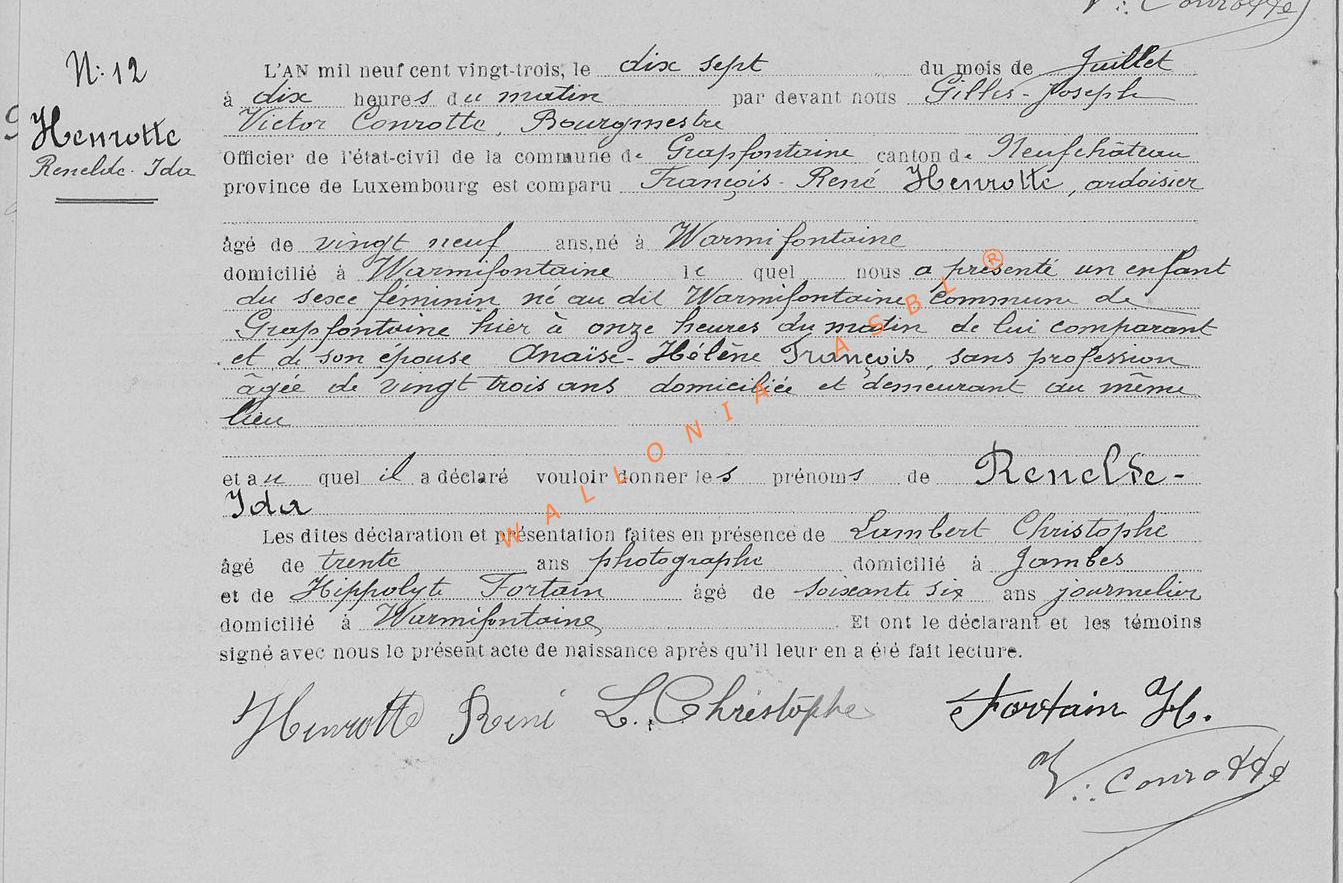 V.: Conrotte
N: 12
Henrotte
Renelde-Ida
L'AN mil neuf cent vingt-trois, le dix sept du mois de Juillet
à dix heures du matin par devant nous Gilles-Joseph
Victor Conrotte, Bourgmestre
Officier de l'état-civil de la commune de Grapfontaine canton de Neufchâteau
province de Luxembourg est comparu François-René Henrotte, ardoisier
âgé de vingt neuf ans, né à Warmifontaine
domicilié à Warmifontaine le quel nous a présenté un enfant
du sexe féminin né au dit Warmifontaine commune de
Grapfontaine hier à onze heures du matin de lui comparant
et de son épouse Anaïse-Hélène François, sans profession
âgée de vingt trois ans domiciliée et demeurant au même
lieu
et au quel il a déclaré vouloir donner les prénoms de Renelde-
Ida
Les dites déclaration et présentation faites en présence de Lambert Christophe
âgé de trente ans photographe domicilié à Jambes
et de Hippolyte Fortain âgé de soixante six ans journalier
domicilié à Warmifontaine Et ont le déclarant et les témoins
signé avec nous le présent acte de naissance après qu'il leur en a été fait lecture.
Henrotte René L. Christophe Fortain H.
V.: Conrotte
WALLONIA ASBL ®